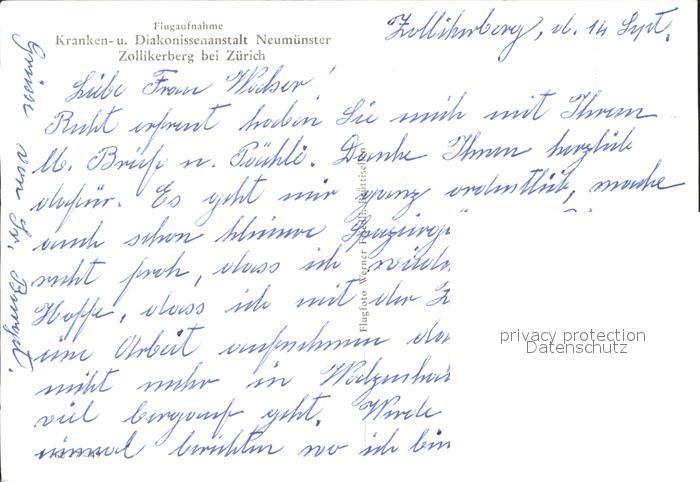 Flugaufnahme
Kranken- u. Diakonissenanstalt Neumünster
Zollikerberg bei Zürich
Zollikerberg, d. 14 Sept.
Liebe Frau Walser!
Recht erfreut haben Sie mich mit Ihrem
lb. Brief u. Päckli. Danke Ihnen herzlich
dafür. Es geht mir ganz ordentlich, mache
auch schon kleinere Spazierg
recht froh, dass ich wieder
Hoffe, dass ich mit der Z
eine Arbeit aufnehmen
nicht mehr in
viel bergauf geht. Werde
einmal berichten wo ich bin
Grüsse von Sr.
Flugfoto Werner Friedli
privacy protection
Datenschutz